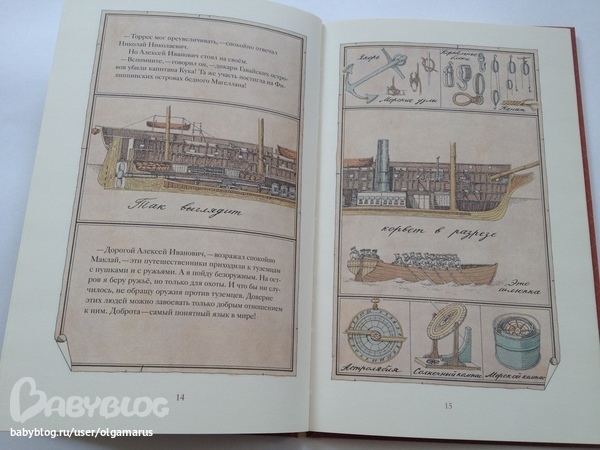 —Торрес мог преувеличивать,—спокойно отвечал
Николай Николаевич.
Но Алексей Иванович стоял на своём.
—Вспомните,—говорил он,—дикари Гавайских остро-
вов убили капитана Кука! Та же участь постигла на Фи-
липпинских островах бедного Магеллана!
Так выглядит
—Дорогой Алексей Иванович,—возражал спокойно
Маклай,—эти путешественники приходили к туземцам
с пушками и с ружьями. А я пойду безоружным. На ост-
ров я беру ружьё, но только для охоты. И что бы ни слу-
чилось, не обращу оружия против туземцев. Доверие
этих людей можно завоевать только добрым отношением
к ним. Доброта—самый понятный язык в мире!
14
Якоря
Морские узлы
блоки
корвет в разрезе
Это
шлюпка
Астролябия
Солнечный компас
Морской компас
15
BABYBLOG
babyblog.ru/user/olgamarus